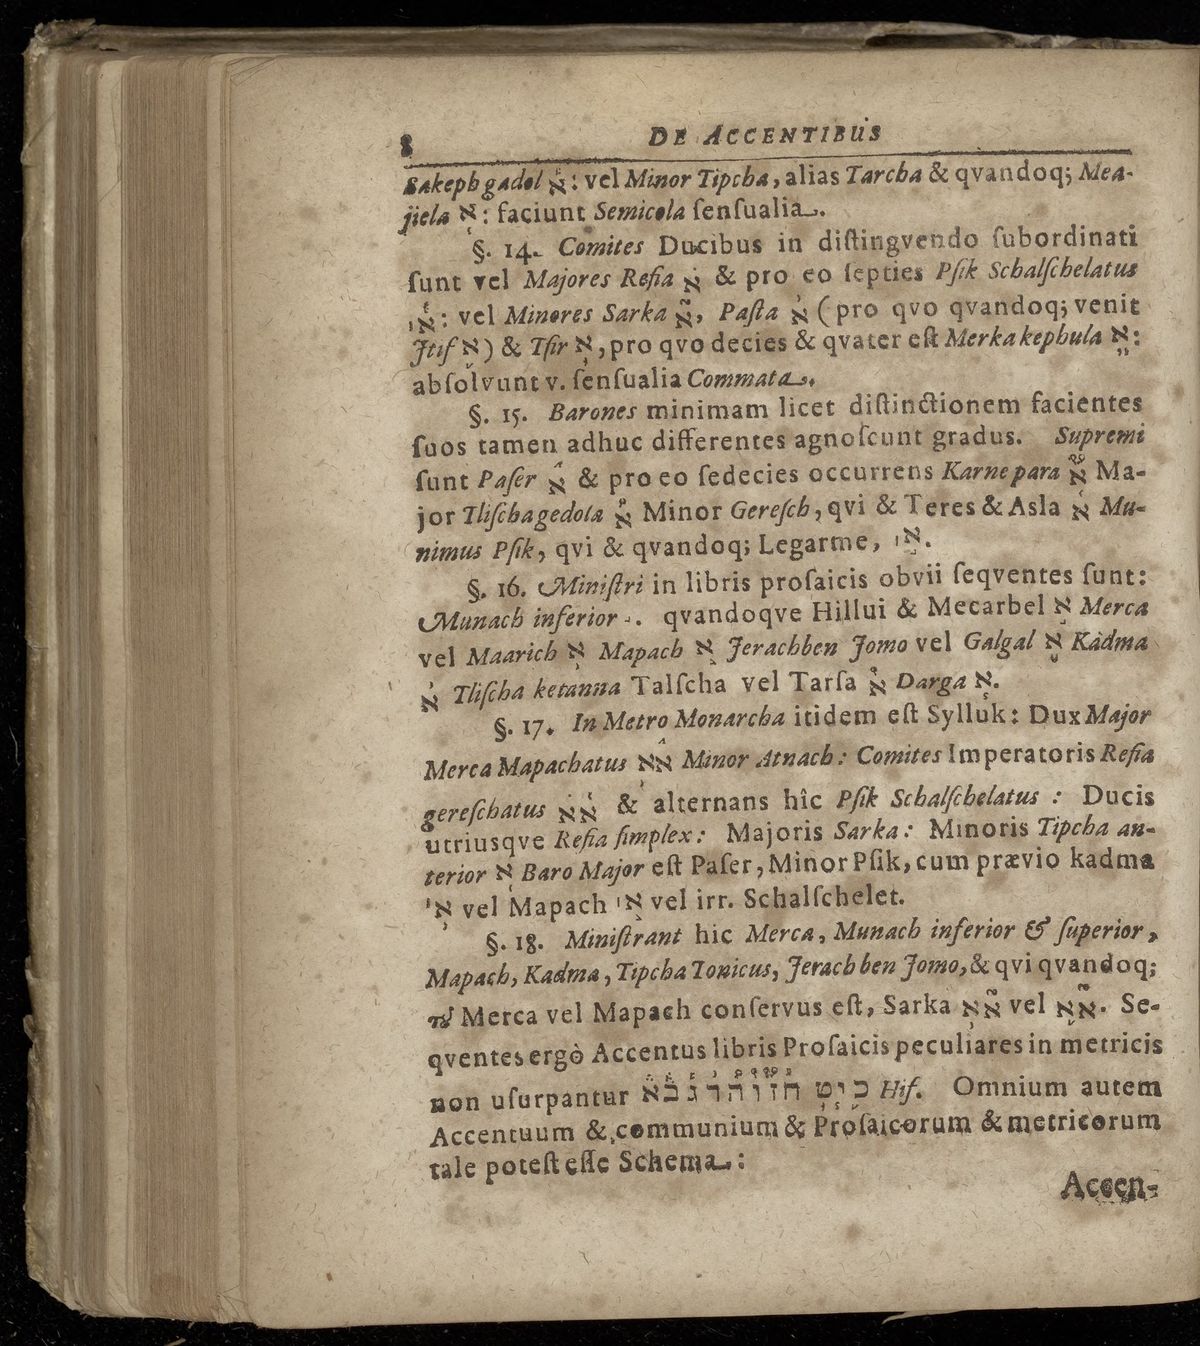 8 DE ACCENTIBUS
Sakeph gadol א֕: vel Minor Tipcha, alias Tarcha & qvandoq; Mea-
jiela א֖: faciunt Semicola ſenſualia.
§. 14. Comites Ducibus in diſtingvendo ſubordinati
ſunt vel Majores Reſia א֗ & pro eo ſepties Pſik Schalſchelatus
׀א֓: vel Minores Sarka א֘, Paſta א֙ (pro qvo qvandoq; venit
Jtif א֚) & Tfir א֛, pro qvo decies & qvater eſt Merka kephula א֦:
abſolvunt v. ſenſualia Commata.
§. 15. Barones minimam licet diſtinctionem facientes
ſuos tamen adhuc differentes agnoſcunt gradus. Supremi
ſunt Paſer א֡ & pro eo ſedecies occurrens Karne para א֟ Ma-
jor Tliſcha gedola א֠ Minor Gereſch, qvi & Teres & Asla א֜ Mu-
nimus Pſik, qvi & qvandoq; Legarme, ׀א֣.
§. 16. Miniſtri in libris proſaicis obvii ſeqventes ſunt:
Munach inferior. qvandoqve Hillui & Mecarbel א֣ Merca
vel Maarich א֥ Mapach א֤ Jerachben Jomo vel Galgal א֪ Kadma
א֨ Tliſcha ketanna Talſcha vel Tarſa א֩ Darga א֧.
§. 17. In Metro Monarcha itidem eſt Sylluk: Dux Major
Merca Mapachatus אא Minor Atnach: Comites Imperatoris Reſia
gereſchatus אא & alternans hîc Pſik Schalſchelatus: Ducis
utriusqve Reſia ſimplex: Majoris Sarka: Minoris Tipcha an-
terior א֭ Baro Major eſt Paſer, Minor Pſik, cum prævio kadma
׀א vel Mapach ׀א vel irr. Schalſchelet.
§. 18. Miniſtrant hic Merca, Munach inferior & ſuperior,
Mapach, Kadma, Tipcha Tonicus, Jerach ben Jomo, & qvi qvandoq;
Merca vel Mapach conſervus eſt, Sarka אא vel אא. Se-
qventes ergò Accentus libris Proſaicis peculiares in metricis
non uſurpantur אבגדהוזח טיכ Hiſ. Omnium autem
Accentuum & communium & Proſaicorum & metricorum
tale poteſt eſſe Schema:
Accen-